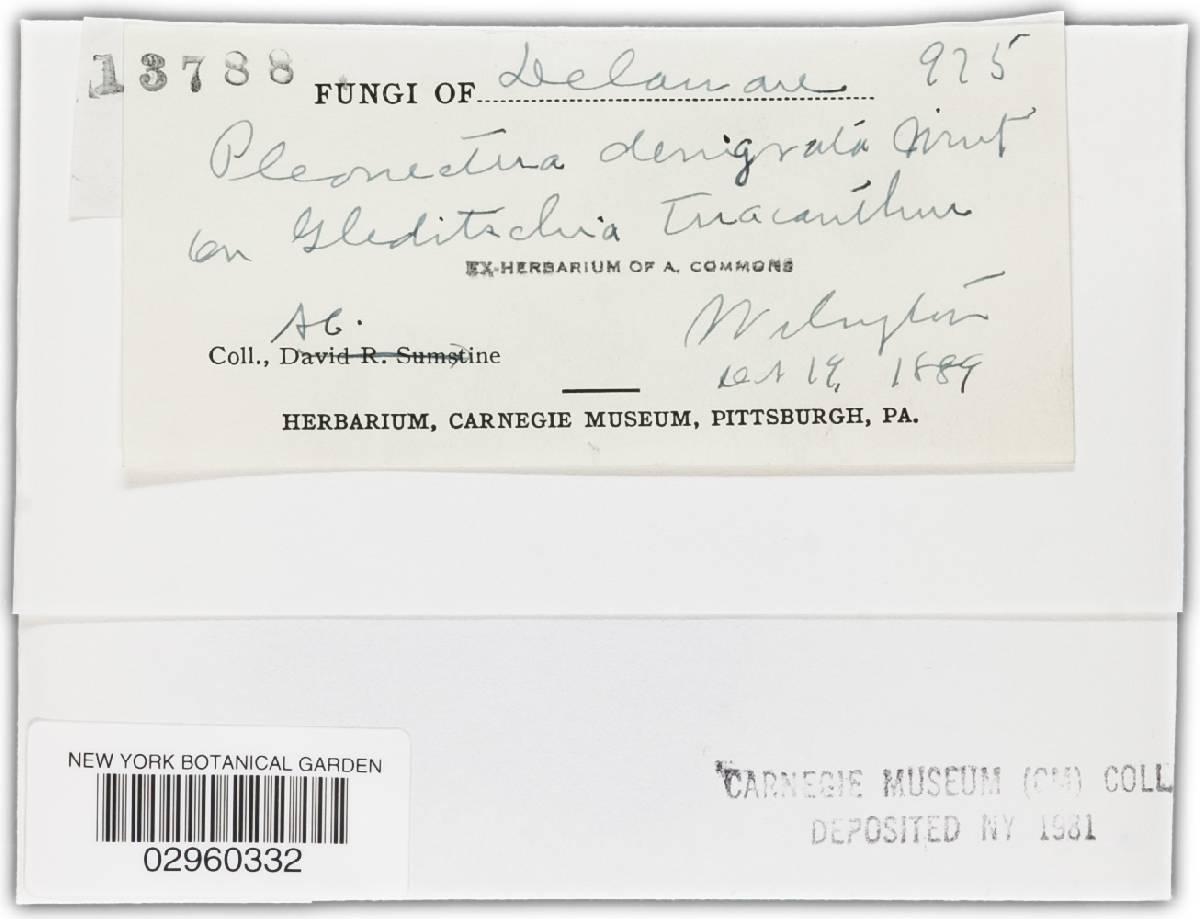 13788 FUNGI OF Delaware 975
Pleonectria denigrata Wint
on Gleditschia Triacanthus
EX-HERBARIUM OF A. COMMONS
A C. Wilmington
Coll., David R. Sumstine
Oct 19, 1889
HERBARIUM, CARNEGIE MUSEUM, PITTSBURGH, PA.
NEW YORK BOTANICAL GARDEN
02960332
CARNEGIE MUSEUM (CM) COLL
DEPOSITED NY 1981